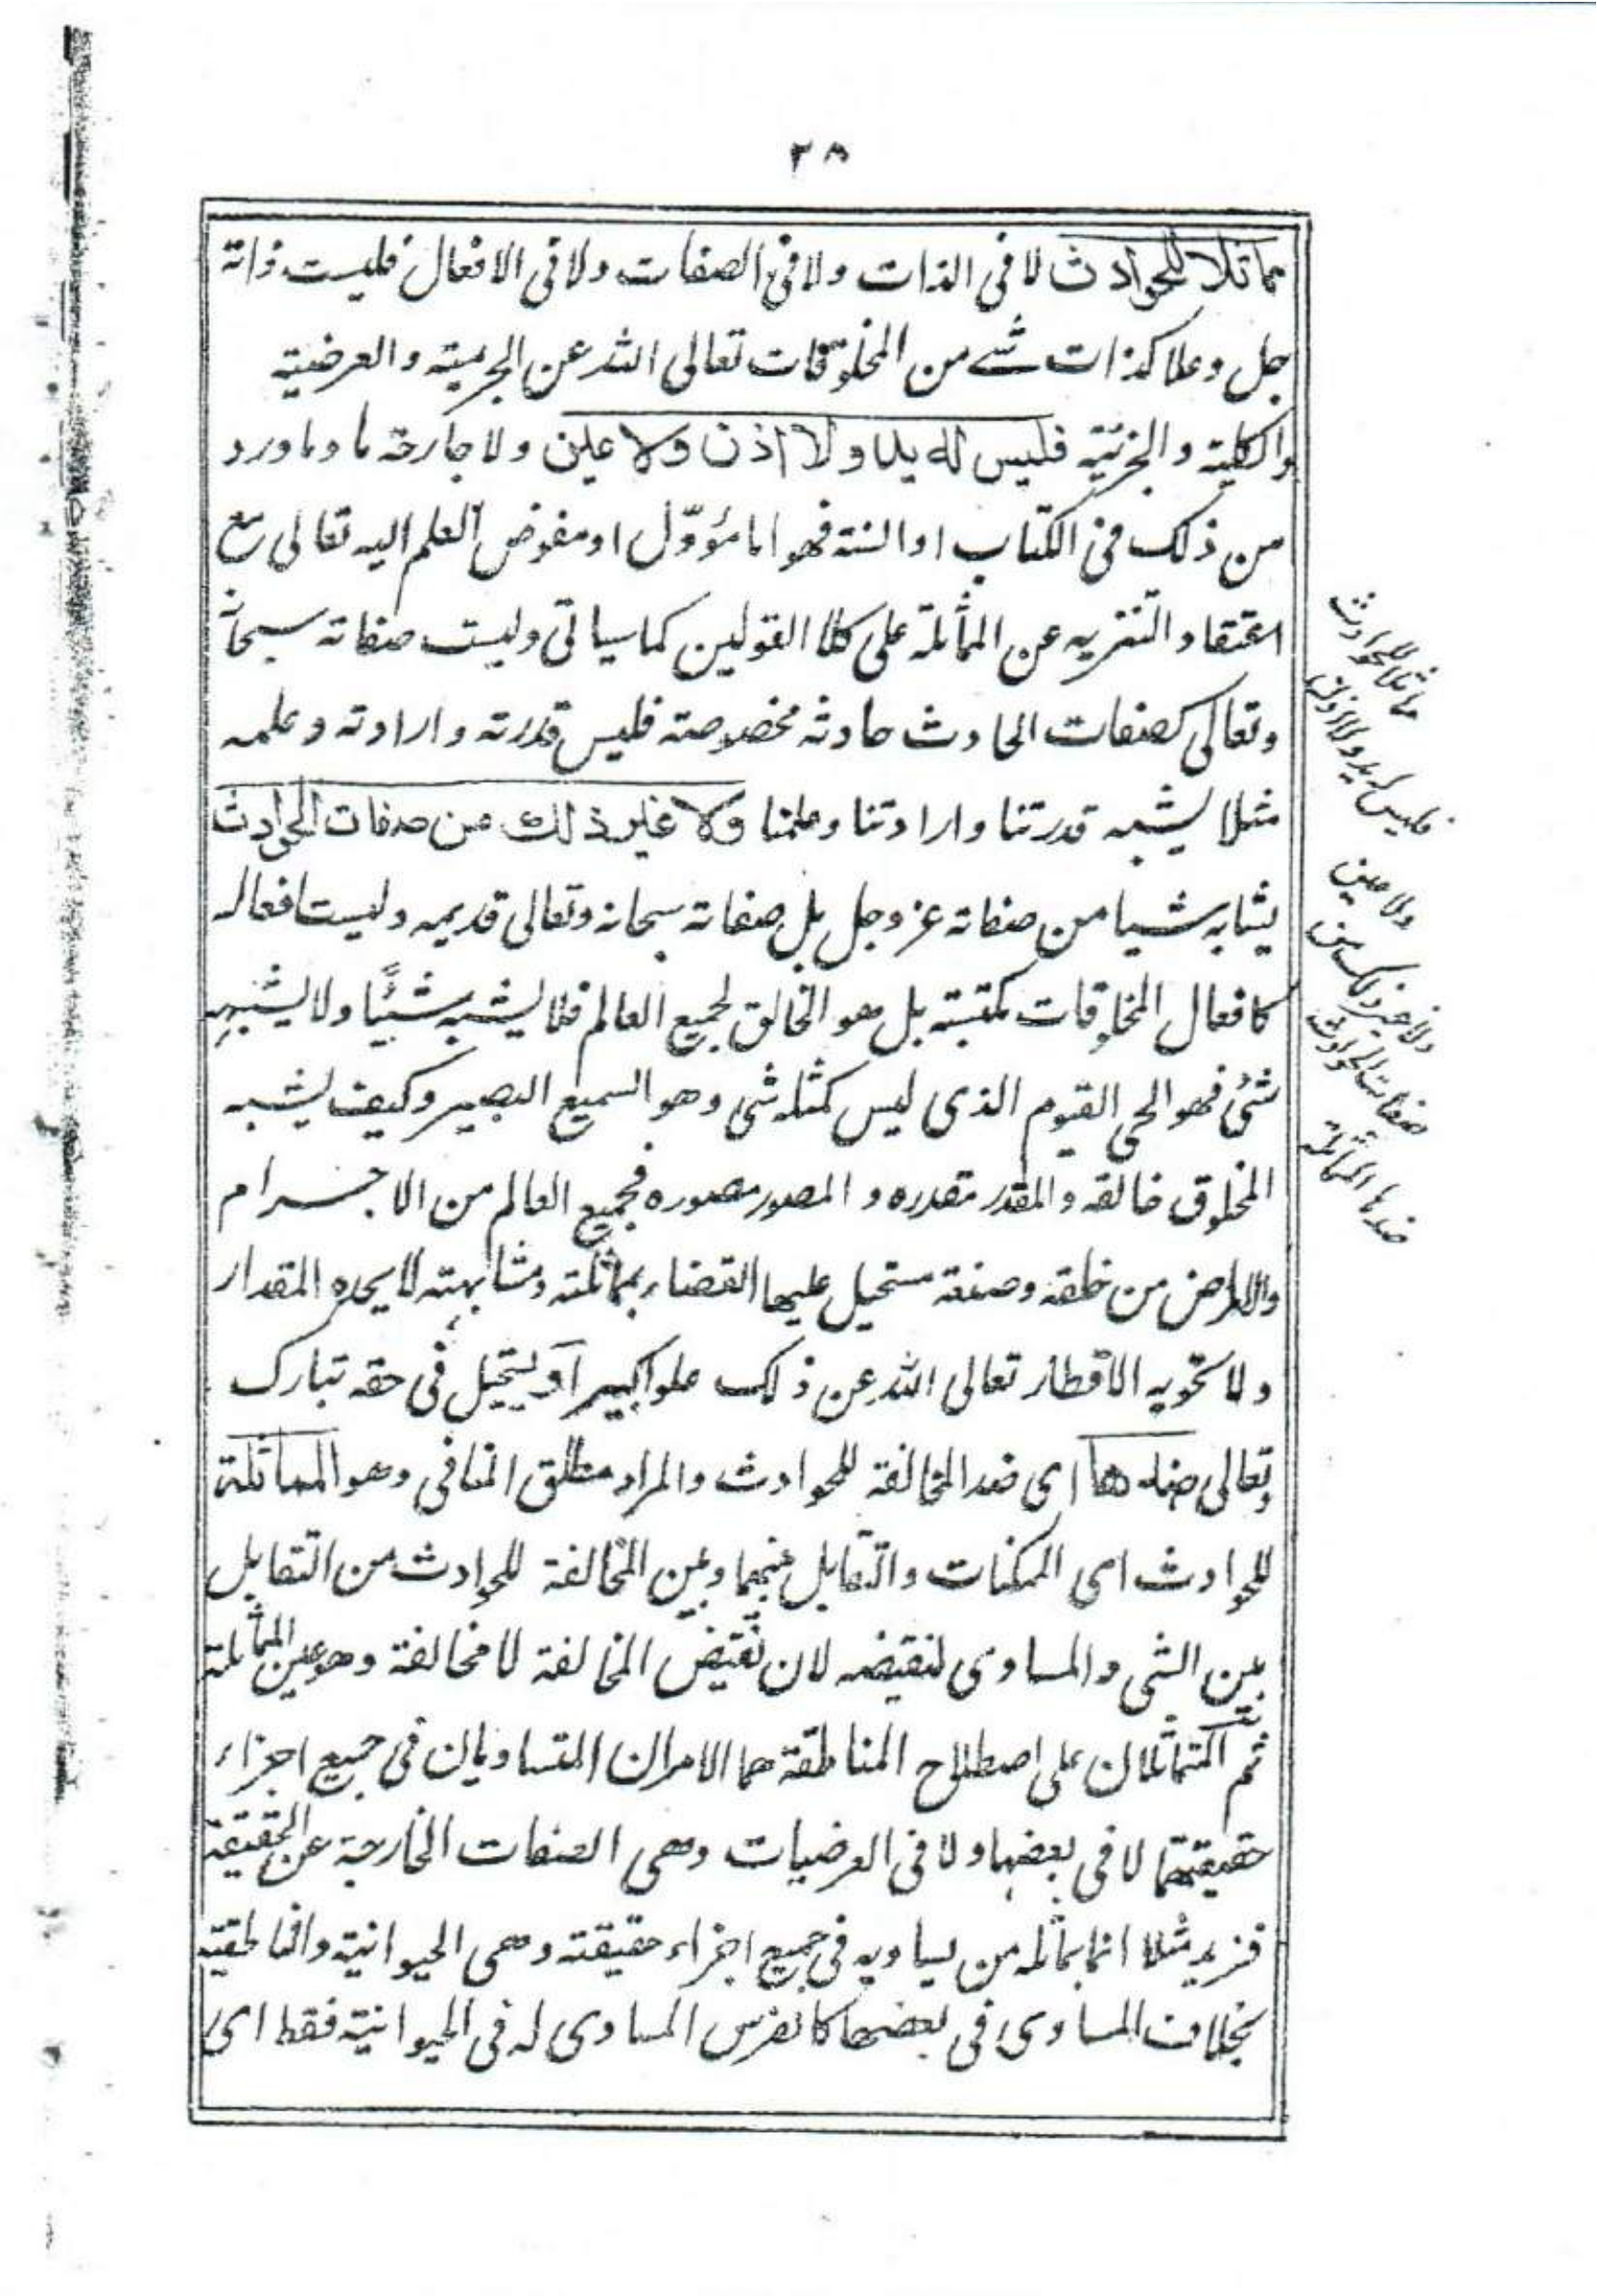 ٣٨
مماثلا للحوادث لا فى الذات ولا فى الصفات ولا فى الافعال فليست ذاته
جل وعلا كذات شے من المخلوقات تعالى الله عن الجرمية والعرضية
والكلية والجزئية فليس له يد ولا اذن ولا عين ولا جارحة ما وما ورد
من ذلك فى الكتاب او السنة فهو اما مؤوّل او مفوض العلم اليه تعالى مع
اعتقاد التنزيه عن المماثلة على كلا القولين كما سياتى وليست صفاته سبحانه
وتعالى كصفات الحادث حادثه مخصوصة فليس قدرته وارادته وعلمه
مثلا يشبه قدرتنا وارادتنا وعلمنا ولا غير ذلك من صفات الحوادث
يشابه شيا من صفاته عز وجل بل صفاته سبحانه وتعالى قديمه وليست افعاله
كافعال المخلوقات مكتسبة بل هو الخالق لجميع العالم فلا يشبه شيئًا ولا يشبهه
شئ فهو الحى القيوم الذى ليس كمثله شى وهو السميع البصير وكيف يشبه
المخلوق خالقه والمقدر مقدره والمصور مصوره فجميع العالم من الاجرام
والاعراض من خلقه وصنعه مستحيل عليها القضاء بمماثلته ومشابهته لا يحده المقدار
ولا تحويه الاقطار تعالى الله عن ذلك علوا كبيرا ويستحيل فى حقه تبارك
وتعالى ضدها اى ضد المخالفة للحوادث والمراد مطلق المنافى وهو المماثلة
للحوادث اى الممكنات والتقابل بينهما وبين المخالفة للحوادث من التقابل
بين الشى والمساوى لنقيضه لان نقيض المخالفة لا مخالفة وهو عين المماثلة
ثم المتماثلان على اصطلاح المناطقة هما الامران المتساويان فى جميع اجزاء
حقيقتهما لا فى بعضها ولا فى العرضيات وهى الصفات الخارجة عن الحقيقة
فزيد مثلا انما يماثله من يساويه فى جميع اجزاء حقيقته وهى الحيوانية والناطقية
بخلاف المساوى فى بعضها كالفرس المساوى له فى الحيوانية فقط اى
مماثلا للحوادث
فليس له يد ولا اذن
ولا عين
ولا غير ذلك من
صفات الحوادث
ضدها المماثلة